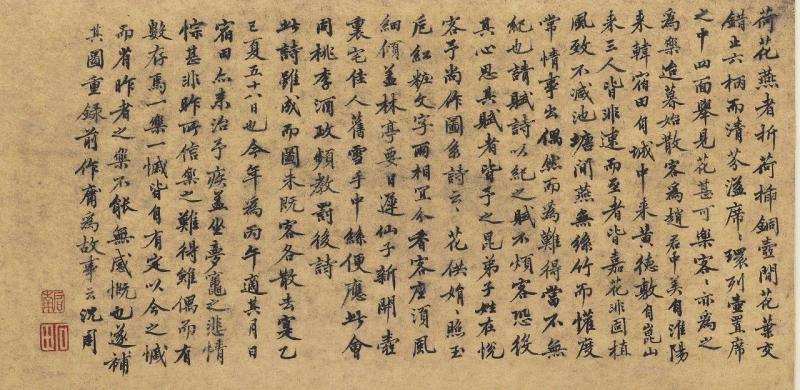 荷花燕者折荷插銅壺間花葉交
錯止六柄而清芬溢席〻環列壺置席
之中四面舉見花甚可樂客〻亦為之
為樂迨暮始散客為趙君中美自淮陽
來韓宿田自城中來黃德敷自崑山
來三人皆非速而至者皆嘉花非固植
風致不減池塘間燕無絲竹而懽度
常情事出偶然而為難得當不無
紀也請賦詩以紀之賦不煩客恐後
其心思其賦者皆予之昆弟子姓在悅
客予尚作圖系詩云花供娟〻照玉
卮紅粧文字兩相宜分香客座須風
細傾蓋林亭要日遲仙子新開壺
裏宅佳人舊雪手中絲便應此會
同桃李酒政頻教罰後詩
此詩雖成而圖未既客各散去寔乙
巳夏五十八日也今年為丙午適其月日
宿田亦來治予疾盖坐夢竈之悲情
悰甚非昨所信樂之難得雖偶而有
數存焉一樂一慼皆自有定以今之慼
而省昨者之樂不能無感慨也遂補
其圖重錄前作庸為故事云沈周